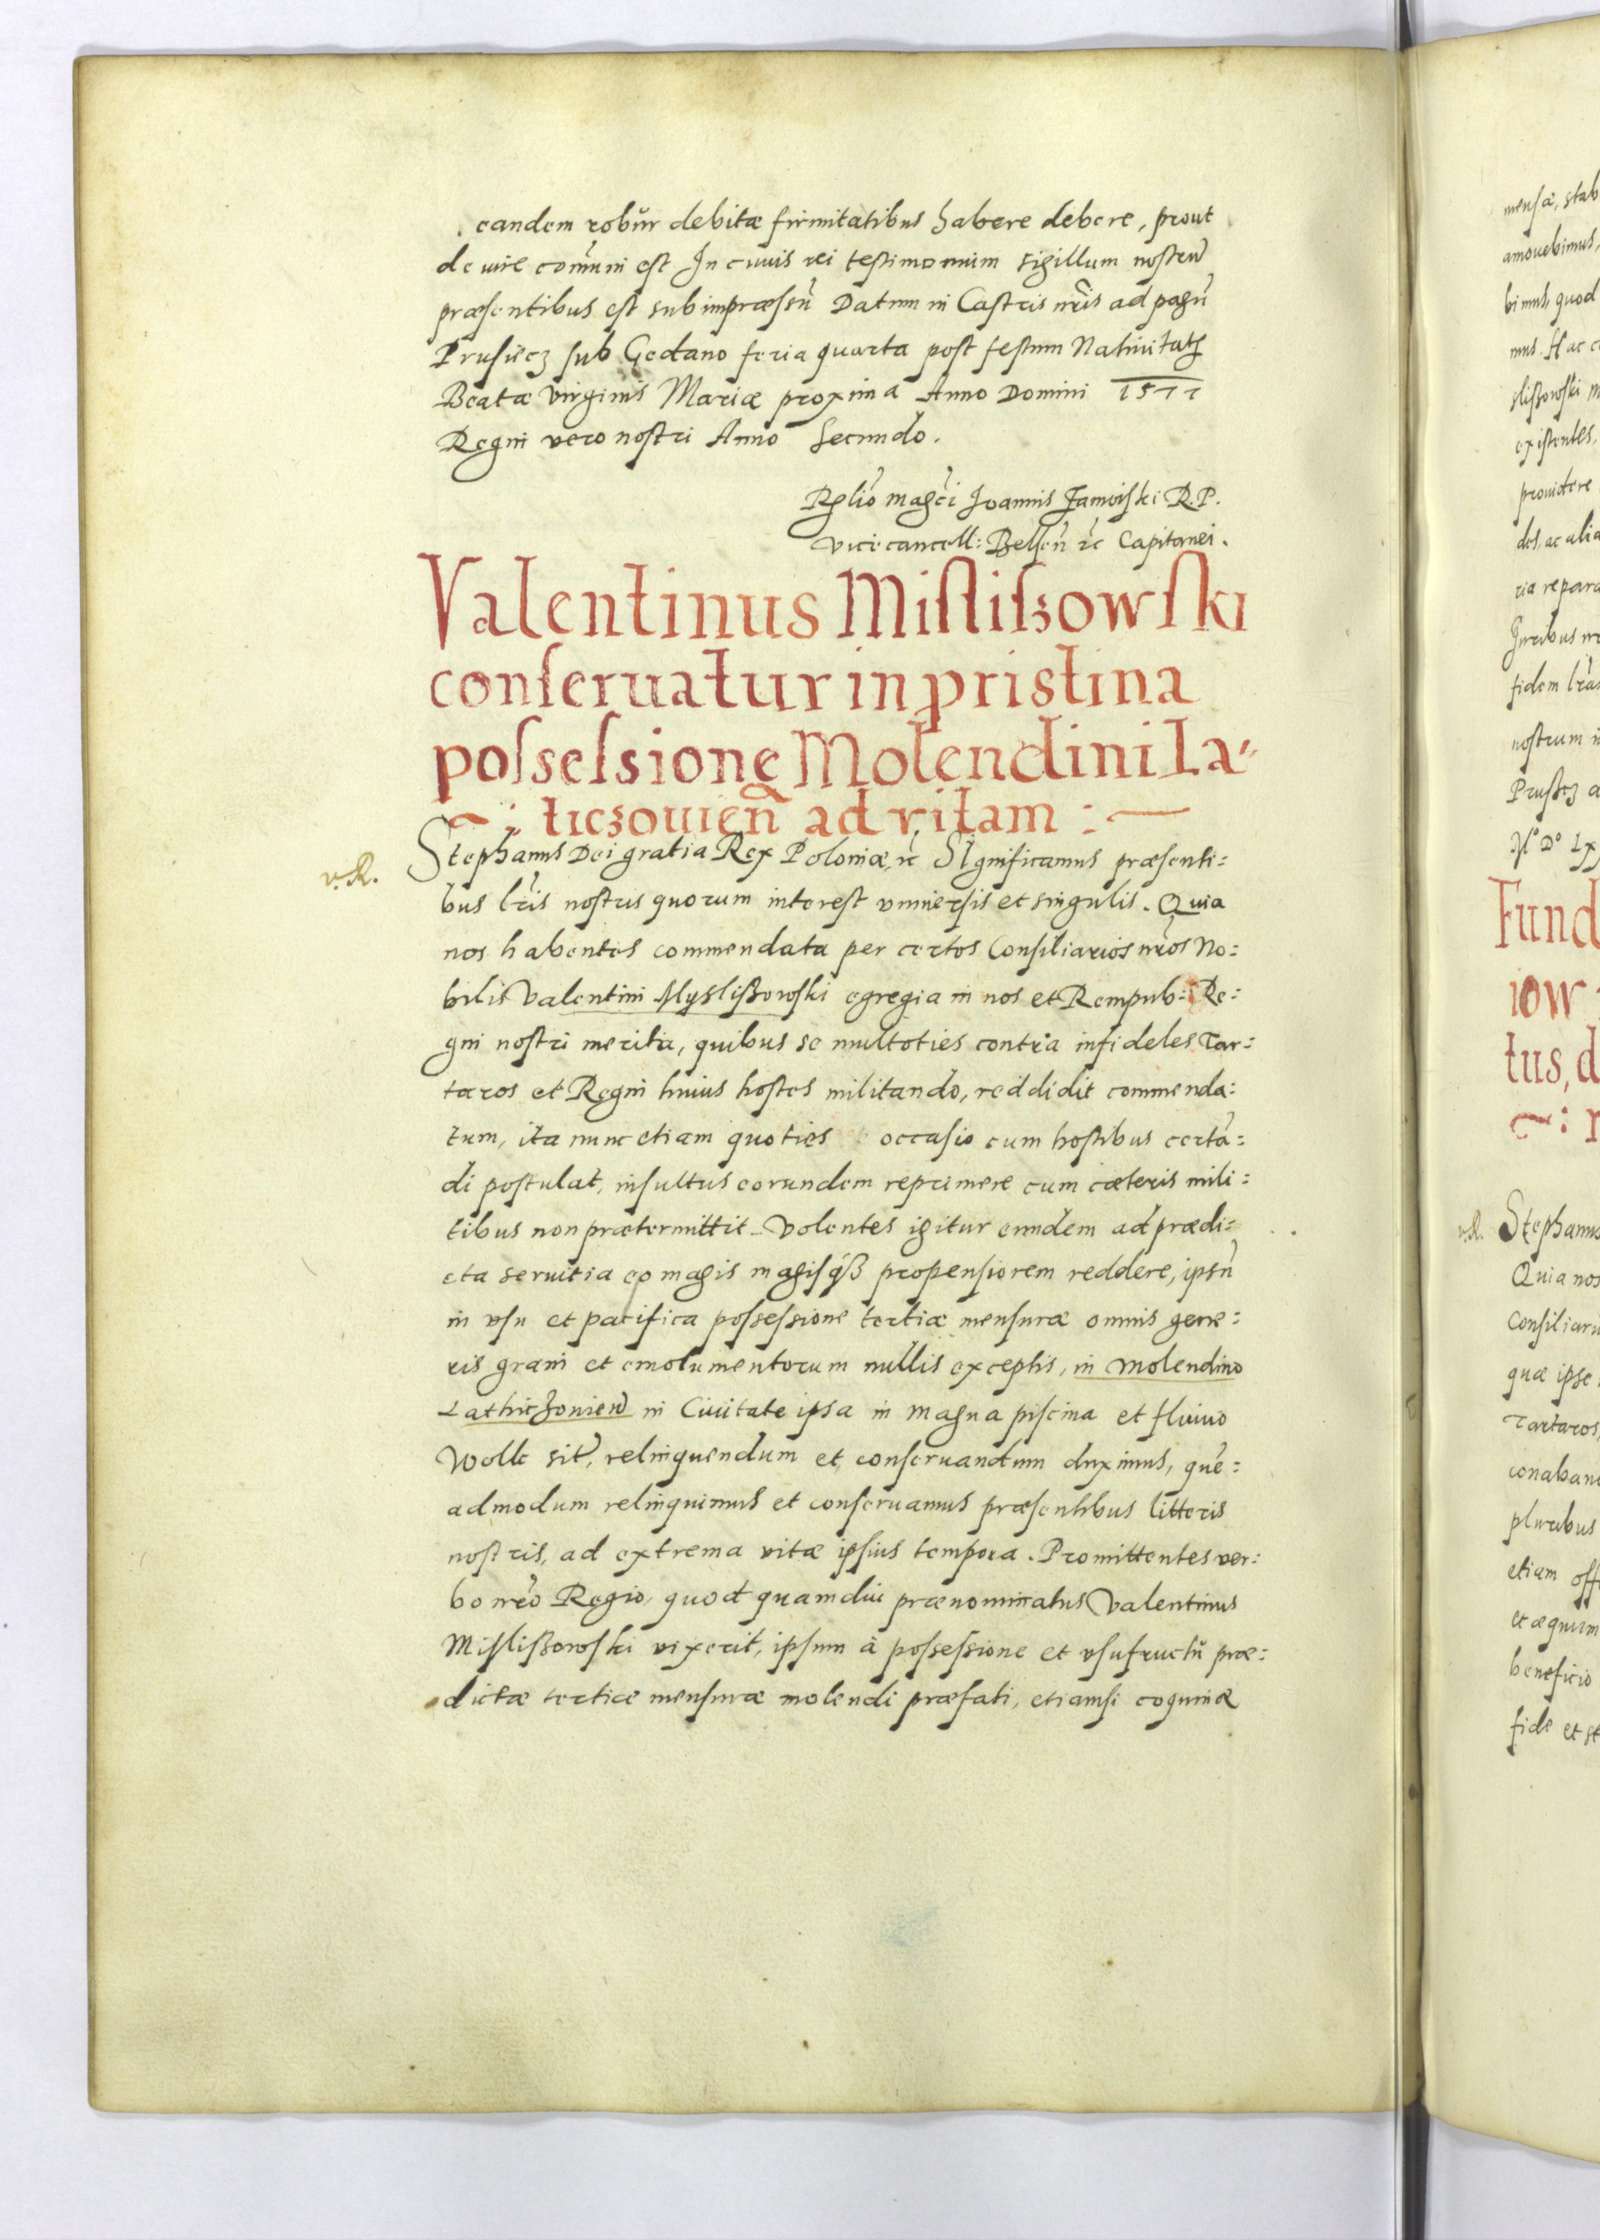 eandem robŭr debitæ firmitatibus habere debere, prout
de iure com̃uni est In cuuis rei testimonium sigillum nostrũ
præsentibus est subimpræssũ Datum in Castris nr̃is ad pagũ
Prusiecz sub Gedano feria quarta post festum Natiuitatꝭ
Beatæ virginis Mariæ proxima Anno Domini 1577
Regni vero nostri Anno Secundo.
Rꝭlio magc̃i Joannis Zamoiski R. P.
vicecancell: Belseñ ꝛc Capitanei.
Valentinus Mislißowski
conseruatur in pristina
possessione Molendini La-
: ticzouieñ ad vitam :
v. R.
Stephanus Dei gratia Rex Poloniæ, ꝛc Significamus præsenti:
bus lr̃is nostris quorum interest vniuersis et singulis. Quia
nos habentes commendata per certos Consiliarios nr̃os No:
bilis Valentini Myslißowski egregia in nos et Rempub: Re:
gni nostri merita, quibus se multoties contra infideles Tar:
taros et Regni huius hostes militando, reddidit commenda:
tum, ita nunc etiam quoties occasio cum hostibus certã:
di postulat, insultus eorundem reprimere cum cæteris mili:
tibus non prætermittit. Volentes igitur eundem ad prædi:
cta seruitia eo magis magisqß propensiorem reddere, ipsũ
in vsu et pacifica possessione tertiæ mensuræ omnis gene:
ris grani et emolumentorum nullis exceptis, in molendino
Lathiczouień in Ciuitate ipsa in magna piscina et fluuio
Wolk sit̃, relinquendum et conseruandum duximus, quẽ:
admodum relinquimus et conseruamus præsentibus litteris
nostris, ad extrema vitæ ipsius tempora. Promittentes ver:
bo nr̃o Regio, quod quamdiu prænominatus Valentinus
Mislißowski vixerit, ipsum à possessione et vsufructŭ præ:
dictæ tertiæ mensuræ molendi præfati, etiamsi coquinæ
mensæ, stab
amouebimus,
bimus, quod
mus. Hac
slißowski
existentes,
prouidere
des, ac alia
ria repara
Juribus
fidem lr̃as
nostrum
Prussz
Fund
iow
tus, d
v. R.
Stephanus
Quia nos
Consiliari
quæ ipse
Tartaros,
conaban
pluribus
etiam off
et æquum
beneficio
fide et st